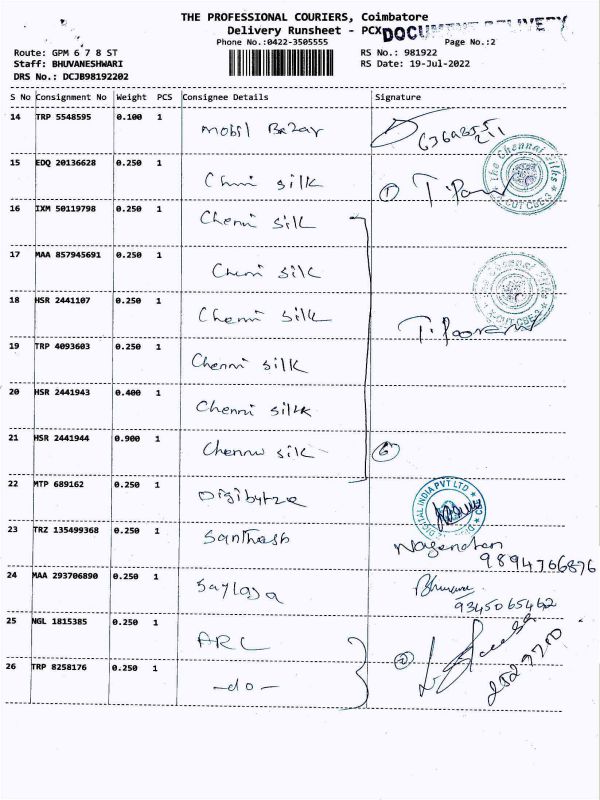 THE PROFESSIONAL COURIERS, Coimbatore
Delivery Runsheet - PCX
DOCUMENT DELIVERY
Phone No.:0422-3505555
Page No.:2
Route: GPM 6 7 8 ST
RS No.: 981922
Staff: BHUVANESHWARI
RS Date: 19-Jul-2022
DRS No.: DCJB98192202
S No Consignment No Weight PCS Consignee Details Signature
14 TRP 5548595 0.100 1 Mobil Bazar
15 EDQ 20136628 0.250 1 Chnni silk ①
The Chennai Silks
16 IXM 50119798 0.250 1 Chenni silk
17 MAA 857945691 0.250 1 Chenni silk
18 HSR 2441107 0.250 1 Chenni silk
19 TRP 4093603 0.250 1 Chenni silk
20 HSR 2441943 0.400 1 Chenni silk
21 HSR 2441944 0.900 1 Chenni silk ⑥
22 MTP 689162 0.250 1
DIGITAL INDIA PVT LTD
23 TRZ 135499368 0.250 1 Santhosh
9894766876
24 MAA 293706890 0.250 1
9345065462
25 NGL 1815385 0.250 1 ARC
26 TRP 8258176 0.250 1 -do- ②